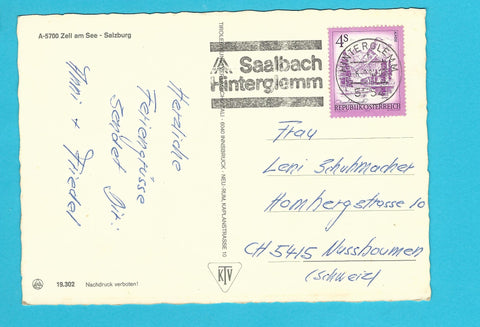 A-5700 Zell am See - Salzburg
Saalbach
Hinterglemm
4 S
HINTERGLEMM
5754
REPUBLIK ÖSTERREICH
Herzliche
Feriengrüsse
Sendet Dir
Anni + Friedel
6040 INNSBRUCK - NEU-RUM, KAPLANSTRASSE 10
KTV
Frau
Leni Schuhmacher
Hombergstrasse 10
CH 5415 Nussbaumen
(Schweiz)
19.302 Nachdruck verboten!